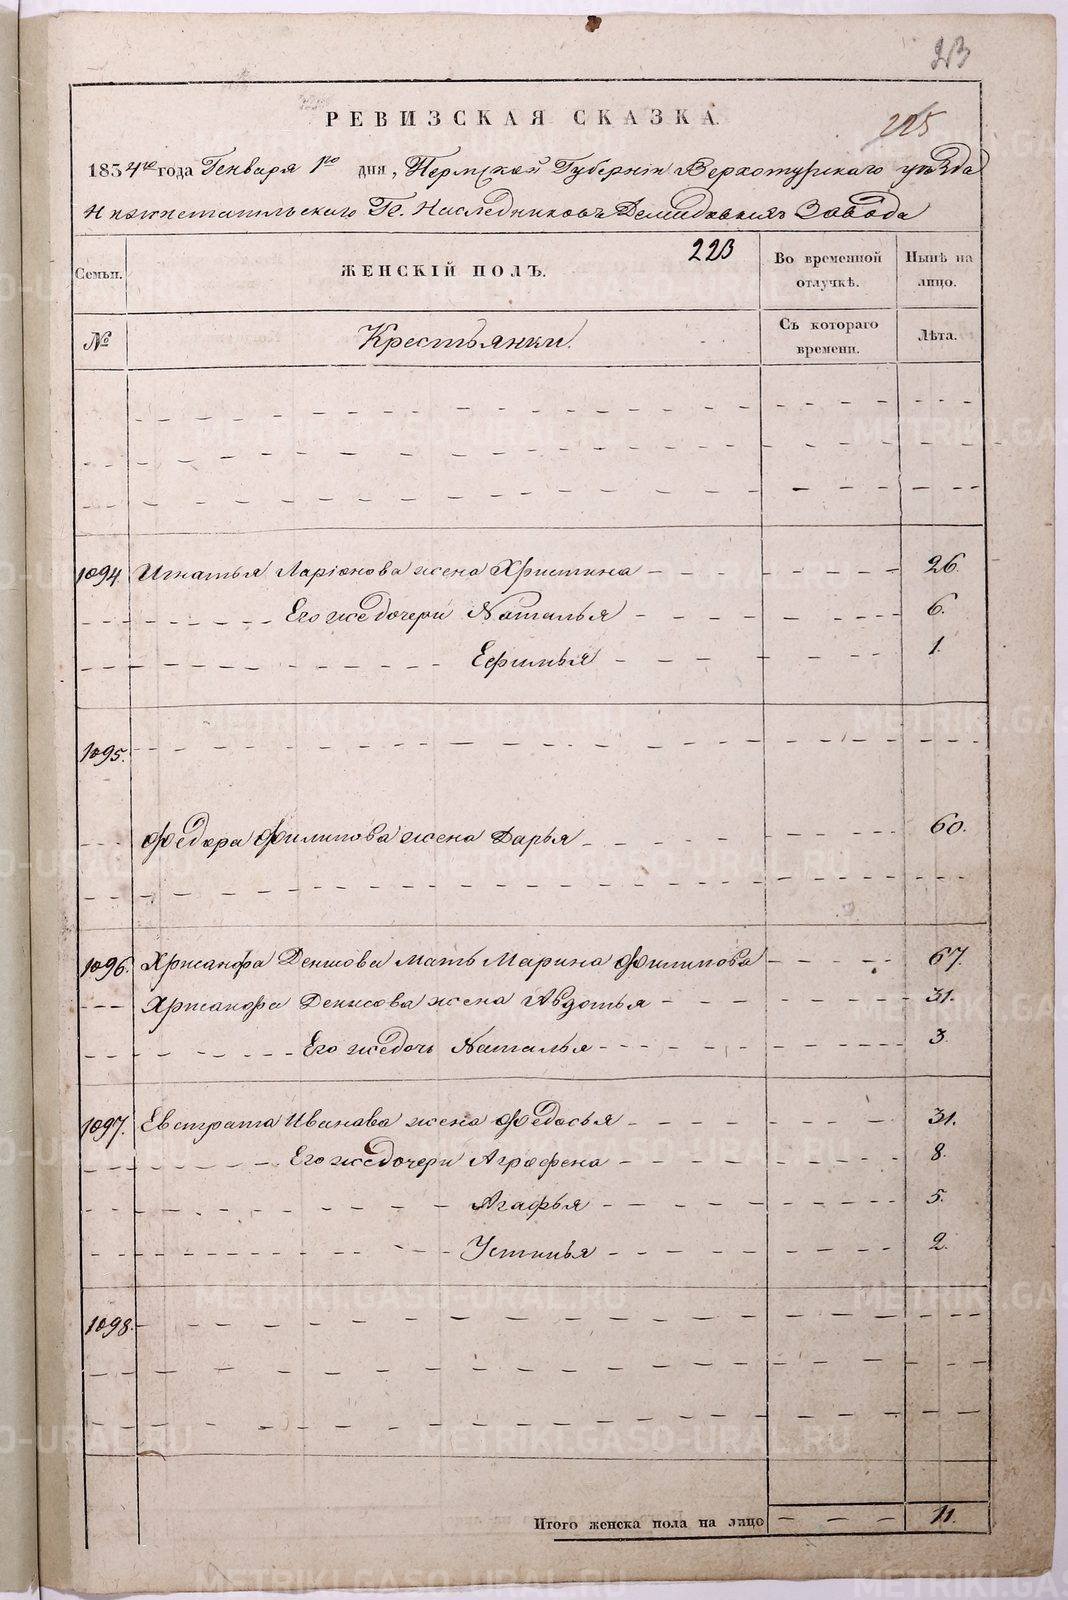 213
РЕВИЗСКАЯ СКАЗКА.
225
1834го года Генваря 1го дня, Пермской Губернiи Верхотурскаго уѣзда
Нижнетагильскаго Гг. Наслѣдниковъ Демидовыхъ Завода
223
Семьи.
ЖЕНСКIЙ ПОЛЪ.
Во временной отлучкѣ.
Нынѣ на лицо.
№
Крестьянки.
Съ котораго времени.
Лѣта.
1094 Игнатья Ларiонова жена Христина 26.
Его же дочери Наталья 6.
Ефимья 1.
1095.
Федора Филипова жена Дарья 60.
1096. Хрисанфа Денисова мать Марина Филипова 67.
Хрисанфа Денисова жена Авдотья 31.
Его же дочь Наталья 3.
1097. Евстрата Иванова жена Федосья 31.
Его же дочери Агрофена 8.
Агафья 5.
Устинья 2.
1098.
Итого женска пола на лицо 11.
METRIKI.GASO-URAL.RU